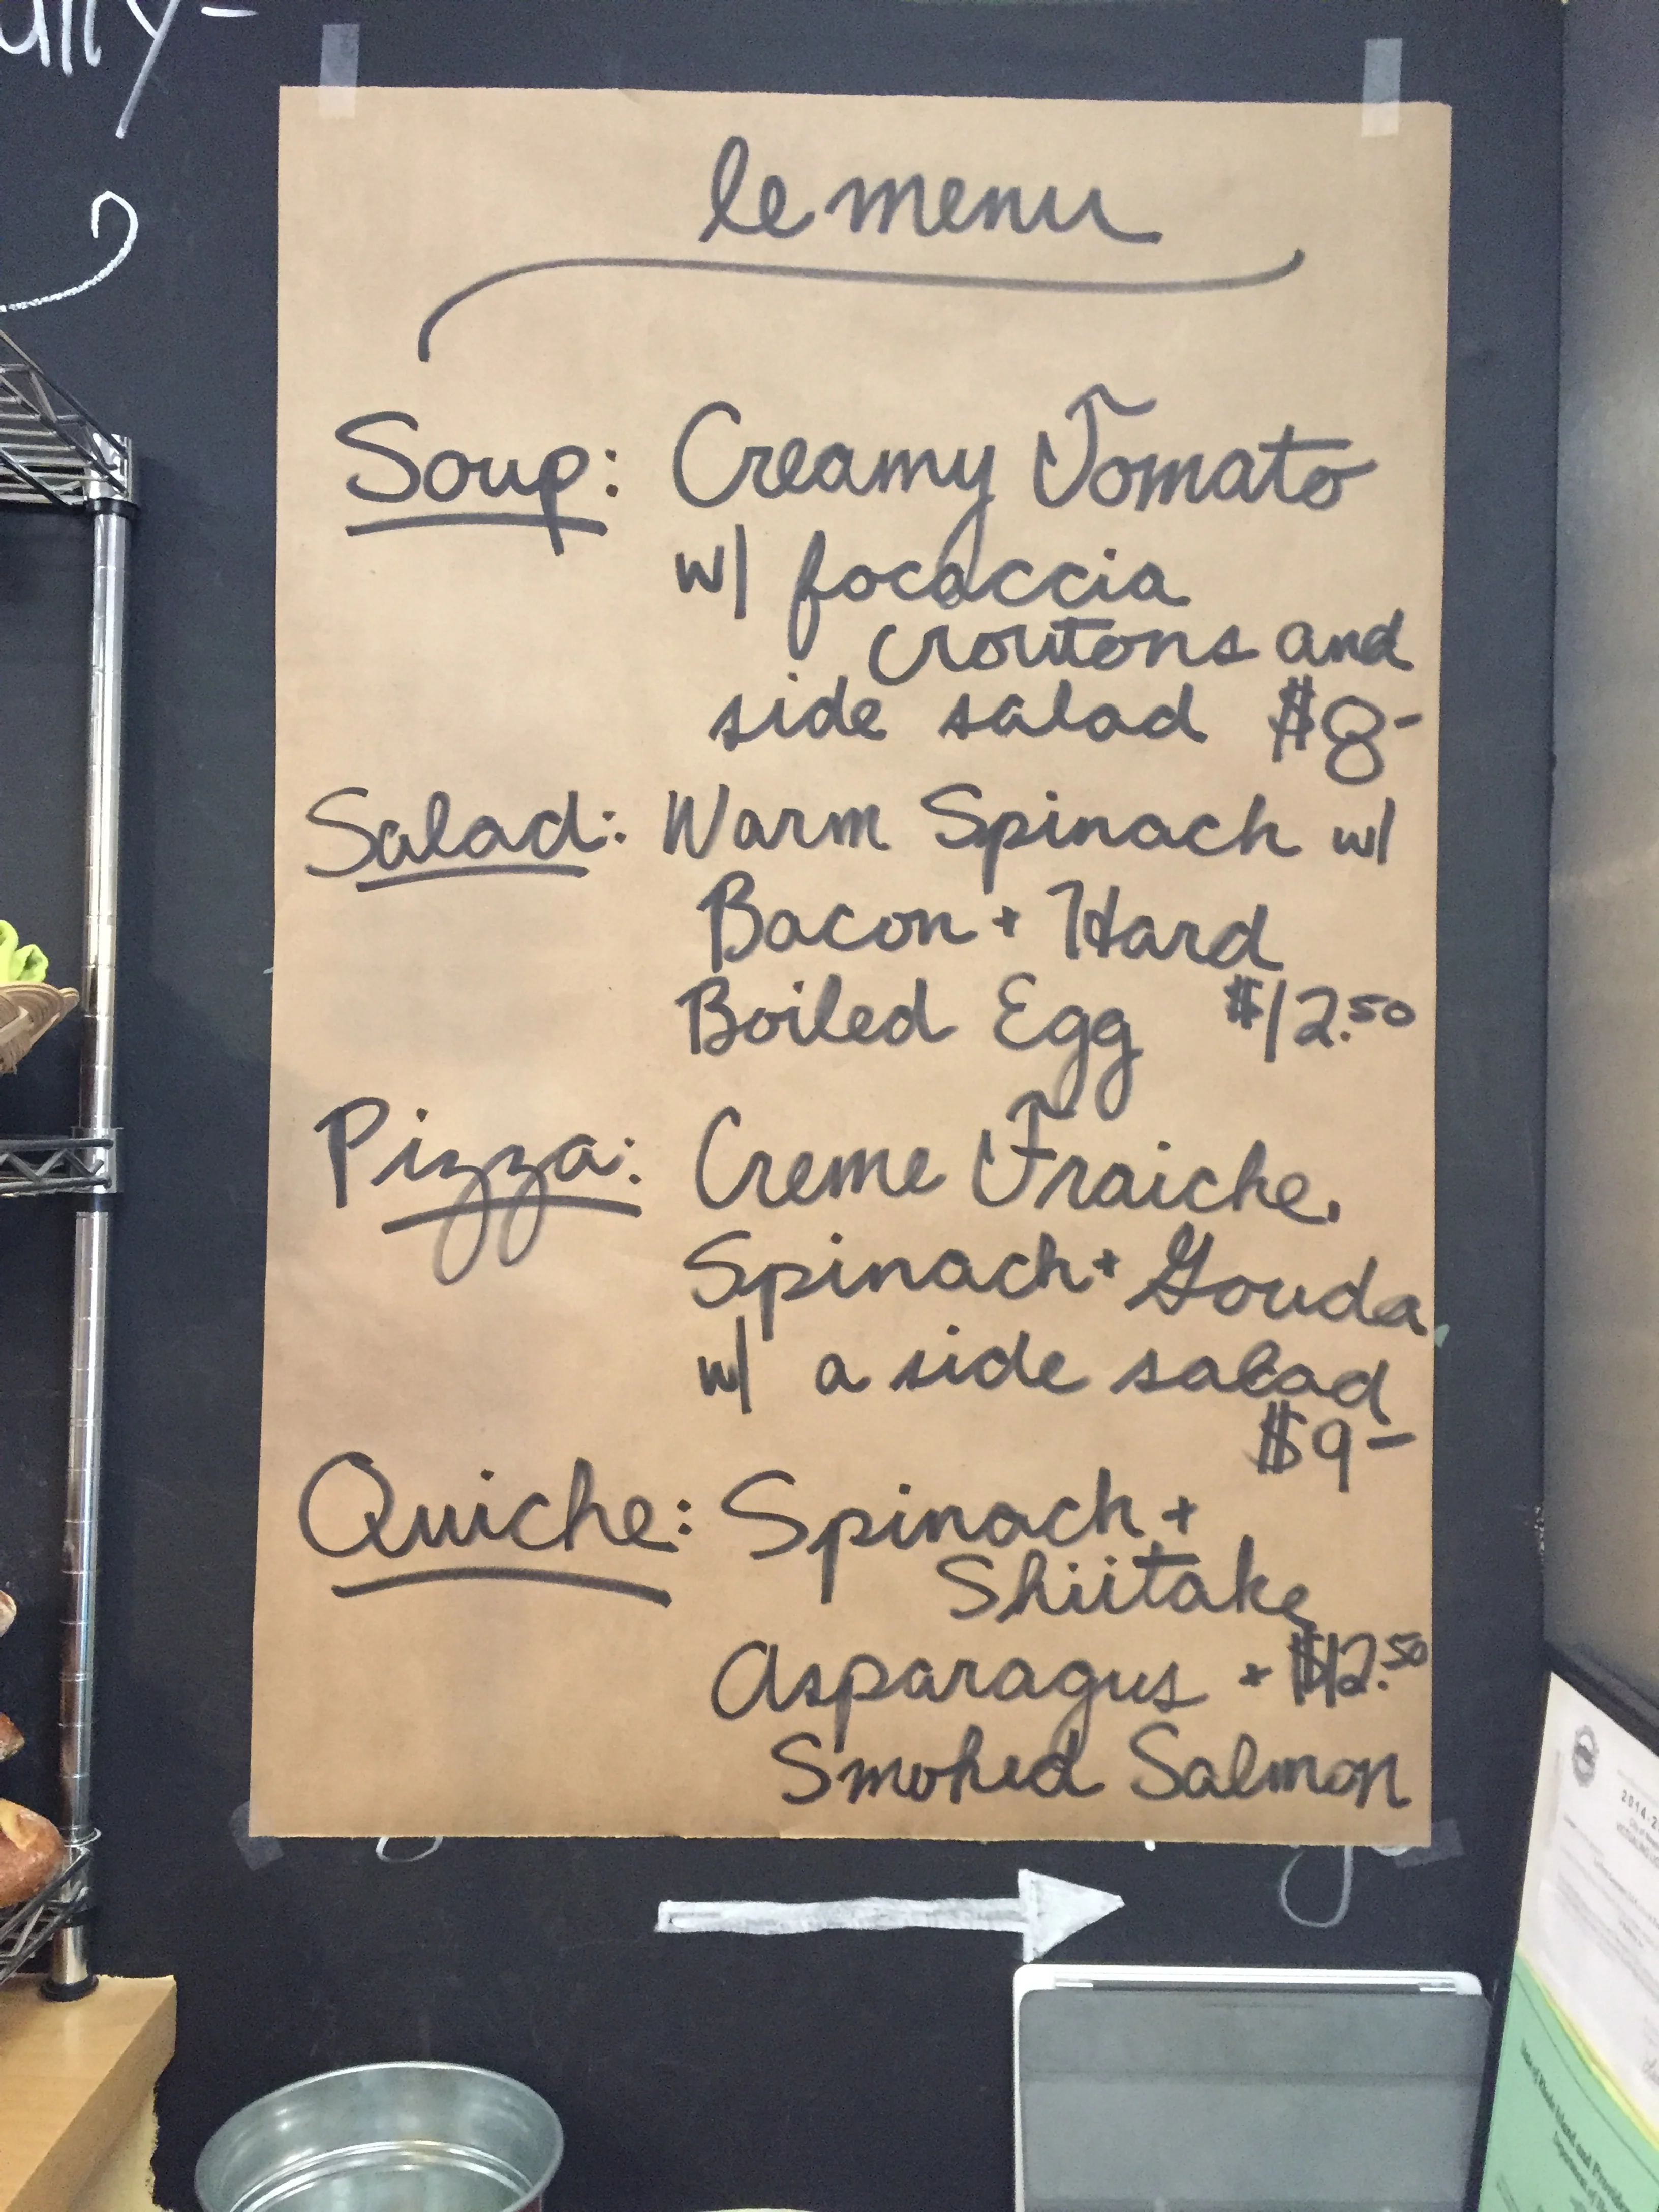 ully-
le menu
Soup: Creamy Tomato
w/ focaccia
croutons and
side salad $8-
Salad: Warm Spinach w/
Bacon + Hard
Boiled Egg $12.50
Pizza: Creme Fraiche,
Spinach + Gouda
w/ a side salad
$9-
Quiche: Spinach +
Shiitake
Asparagus + $12.50
Smoked Salmon
2014-2
State of Rhode Island and Providen
Departmen